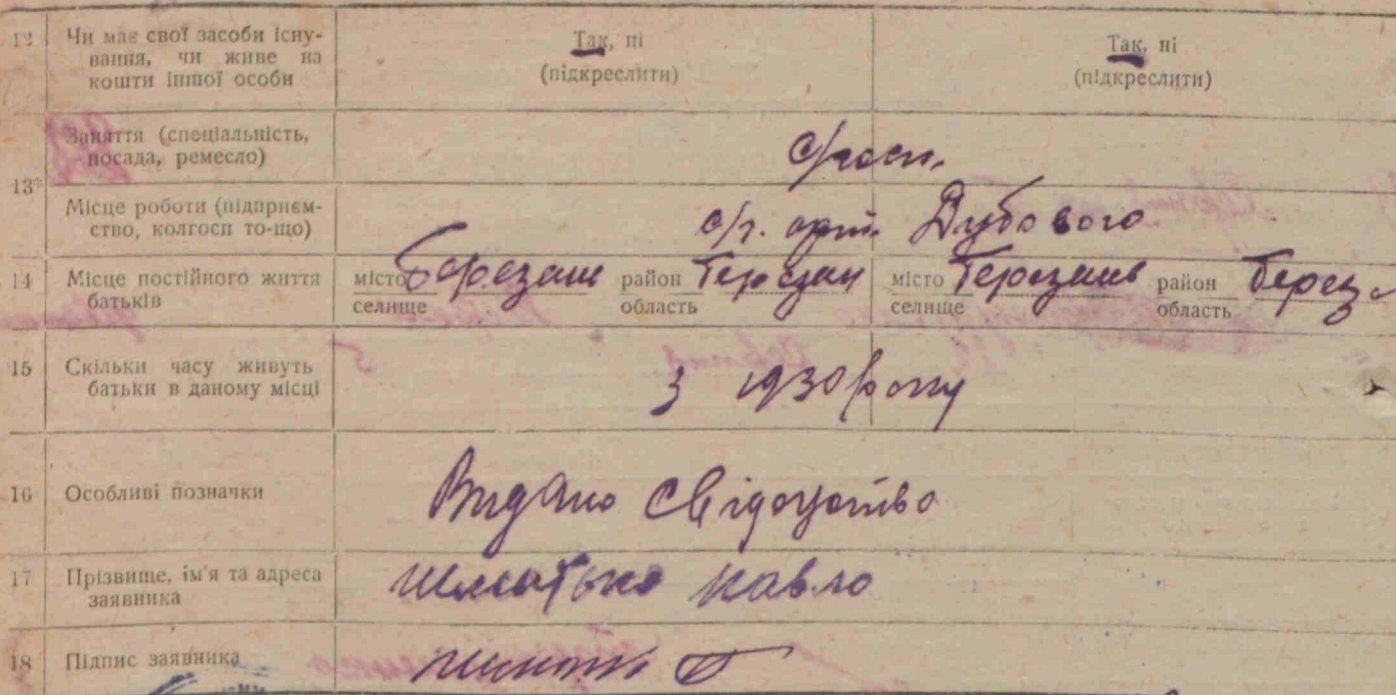 12 Чи має свої засоби існу-
вання, чи живе на
кошти іншої особи
Так, ні
(підкреслити)
Так, ні
(підкреслити)
13 Заняття (спеціальність,
посада, ремесло)
с/госп.
Місце роботи (підприєм-
ство, колгосп то-що)
с/г. арт. Дубового
14 Місце постійного життя
батьків
місто Березань район Березан
селище область
місто Березань район Берез
селище область
15 Скільки часу живуть
батьки в даному місці
з 1930 року
16 Особливі позначки
Видано свідоцтво
17 Прізвище, ім'я та адреса
заявника
Шматько Павло
18 Підпис заявника